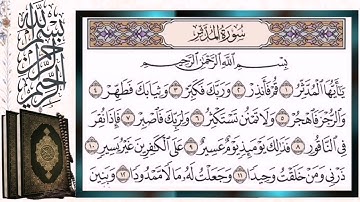 سُورَةُ المُدَّثِّر
بِسْمِ اللَّهِ الرَّحْمَٰنِ الرَّحِيمِ
يَٰٓأَيُّهَا ٱلْمُدَّثِّرُ ١ قُمْ فَأَنذِرْ ٢ وَرَبَّكَ فَكَبِّرْ ٣ وَثِيَابَكَ فَطَهِّرْ ٤
وَٱلرُّجْزَ فَٱهْجُرْ ٥ وَلَا تَمْنُن تَسْتَكْثِرُ ٦ وَلِرَبِّكَ فَٱصْبِرْ ٧ فَإِذَا نُقِرَ
فِي ٱلنَّاقُورِ ٨ فَذَٰلِكَ يَوْمَئِذٍ يَوْمٌ عَسِيرٌ ٩ عَلَى ٱلْكَٰفِرِينَ غَيْرُ يَسِيرٍ ١٠
ذَرْنِي وَمَنْ خَلَقْتُ وَحِيدًا ١١ وَجَعَلْتُ لَهُۥ مَالًا مَّمْدُودًا ١٢ وَبَنِينَ
بسم الله الرحمن الرحيم